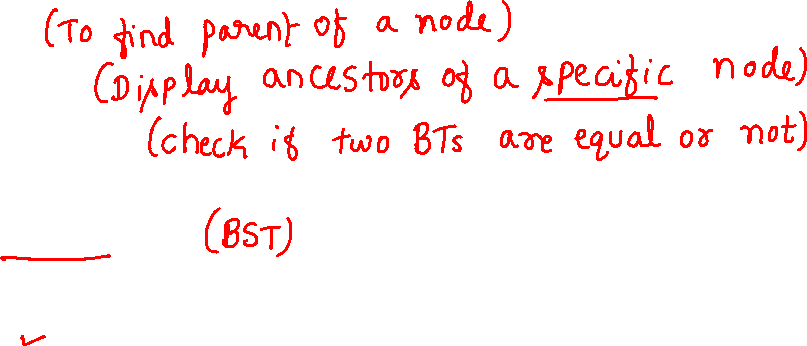 (To find parent of a node)
(Display ancestors of a specific node)
(check if two BTs are equal or not)
(BST)